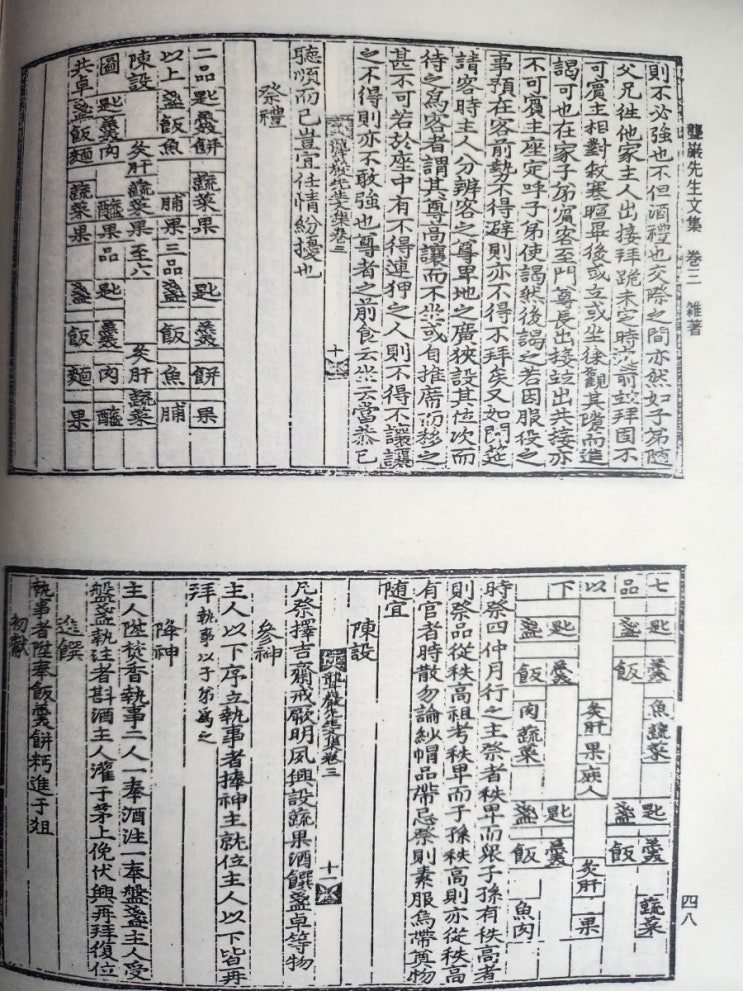 聾巖先生文集 卷三 雜著
則不必強也不但酒禮也交際之間亦然如子弟隨
父兄徃他家主人出接拜跪未定時
前並拜固不
可賓主相對敘寒暄畢後或立或坐徐觀其
而進
謁可也在家子弟賓客至門尊長出接並出共接亦
不可賓主座定呼子弟使謁然後謁之若因服役之
事預在客前勢不得避則亦不得不拜矣又如開筵
請客時主人分辨客之尊卑地之廣狹設其位次而
待之爲客者謂其尊高讓而不坐或自推席而移之
甚不可若於座中有不得連狎之人則不得不讓讓
之不得則亦不敢強也尊者之前食云坐云當恭已
聾巖先生文集卷三
十
聽順而已豈宜任情紛擾也
祭禮
二品 匙 羹 餅 蔬菜 果 匙 羹 餅 果
以上 盞 飯 魚 脯 果 三品 盞 飯 魚 脯
陳設 炙肝 蔬菜 果 至六 炙肝 蔬菜
圖 匙 羹 肉 醢 果 品 匙 羹 肉 醢
共卓 盞 飯 麵 蔬菜 果 盞 飯 麵 果
七 匙 羹 魚 蔬菜 匙 羹 蔬菜
品 盞 飯 盞 飯
以 炙肝 果 庶人 炙肝 果
下 匙 羹 匙 羹
盞 飯 肉 蔬菜 盞 飯 魚肉
時祭四仲月行之主祭者秩卑而衆子孫有秩高者
則祭品從秩高祖考秩卑而子孫秩高則亦從秩高
有官者時散勿論紗帽品帶忌祭則素服烏帶奠物
随宜
陳設
聾巖先生文集卷三
十一
凡祭擇吉齋戒厥明夙興設蔬果酒饌盞卓等物
參神
主人以下序立執事者捧神主就位主人以下皆再
拜 執事以子弟爲之
降神
主人陞焚香執事二人一奉酒注一奉盤盞主人受
盤盞執注者斟酒主人灌于茅上俛伏興再拜復位
進饌
執事者陞奉飯羹餅麪進于俎
初獻
四八